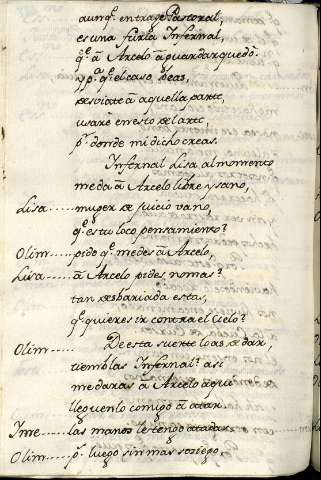 aunq.e entrage Pastoral,
es una furia Infernal,
q.e â Arcelo â guardar quedô.
y p.a q.e el caso veas,
desviate â aquella parte,
usarè en esto del arte,
p.r donde mi dicho creas.
Infernal Lisa al momento
me da â Arcelo libre y sano,
Lisa..... muger de juicio vano,
q.e es tu loco pensamiento?
Olim..... pido q.e me des â Arcelo,
Lisa...... â Arcelo pides nomas?
tan desbariada estas,
q.e quieres ir contra el Cielo?
Olim...... De esta suerte lo as de dar
tiemblas Infernal? asi
me daras â Arcelo aqui
llequenlo comigo â atar.
Ime..... las manos le tengo atadas.
Olim..... p.s luego sin mas sosiego